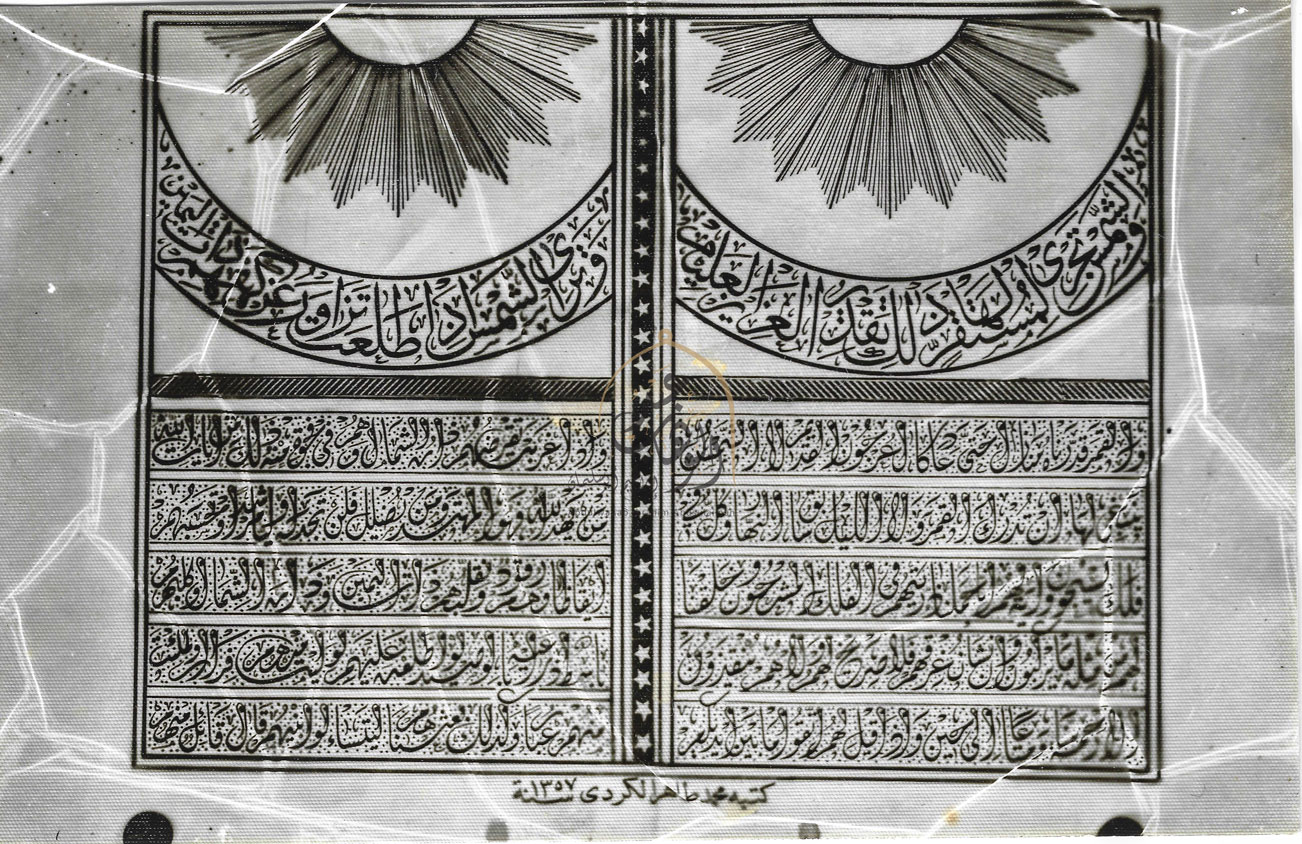 والشمس تجرى لمستقر لها ذلك تقدير العزيز العليم
والقمر قدرناه منازل حتى عاد كالعرجون القديم لا الشمس
ينبغى لها أن تدرك القمر ولا الليل سابق النهار وكل فى
فلك يسبحون وآية لهم أنا حملنا ذريتهم فى الفلك المشحون وخلقنا
لهم من مثله ما يركبون وإن نشأ نغرقهم فلا صريخ لهم ولا هم ينقذون
إلا رحمة منا ومتاعا إلى حين وإذا قيل لهم اتقوا ما بين أيديكم
وترى الشمس إذا طلعت تزاور عن كهفهم ذات اليمين
وإذا غربت تقرضهم ذات الشمال وهم فى فجوة منه ذلك من آيات الله
من يهد الله فهو المهتد ومن يضلل فلن تجد له وليا مرشدا وتحسبهم
أيقاظا وهم رقود ونقلبهم ذات اليمين وذات الشمال وكلبهم
باسط ذراعيه بالوصيد لو اطلعت عليهم لوليت منهم فرارا ولملئت
منهم رعبا وكذلك بعثناهم ليتساءلوا بينهم قال قائل منهم
كتبه محمد طاهر الكردى سنة ١٣٥٧